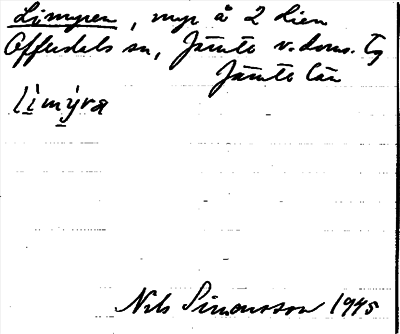 Limyren, myr å 2 Lien
Offerdals sn, Jämtl. v. doms. Tg
Jämtl. län
lìmýra
Nils Simonsson 1945